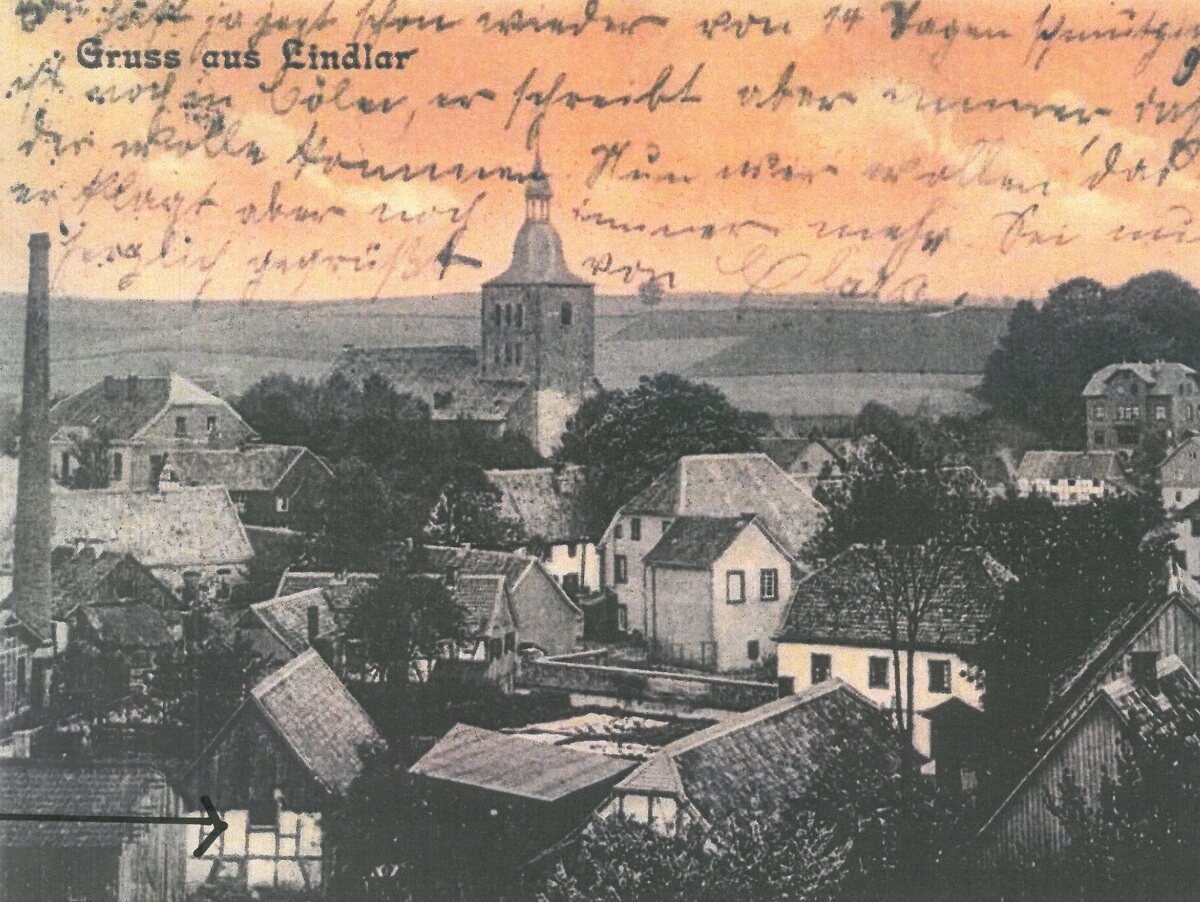 Du hast ja jetzt schon wieder von 14 Tagen schmutzige
Gruss aus Lindlar
ist noch in Cöln, er schreibt aber immer daß
der wolle kommen. Nun wir wollen, daß
er klagt aber noch immer mehr. Sei nun
herzlich gegrüßt von Clara.